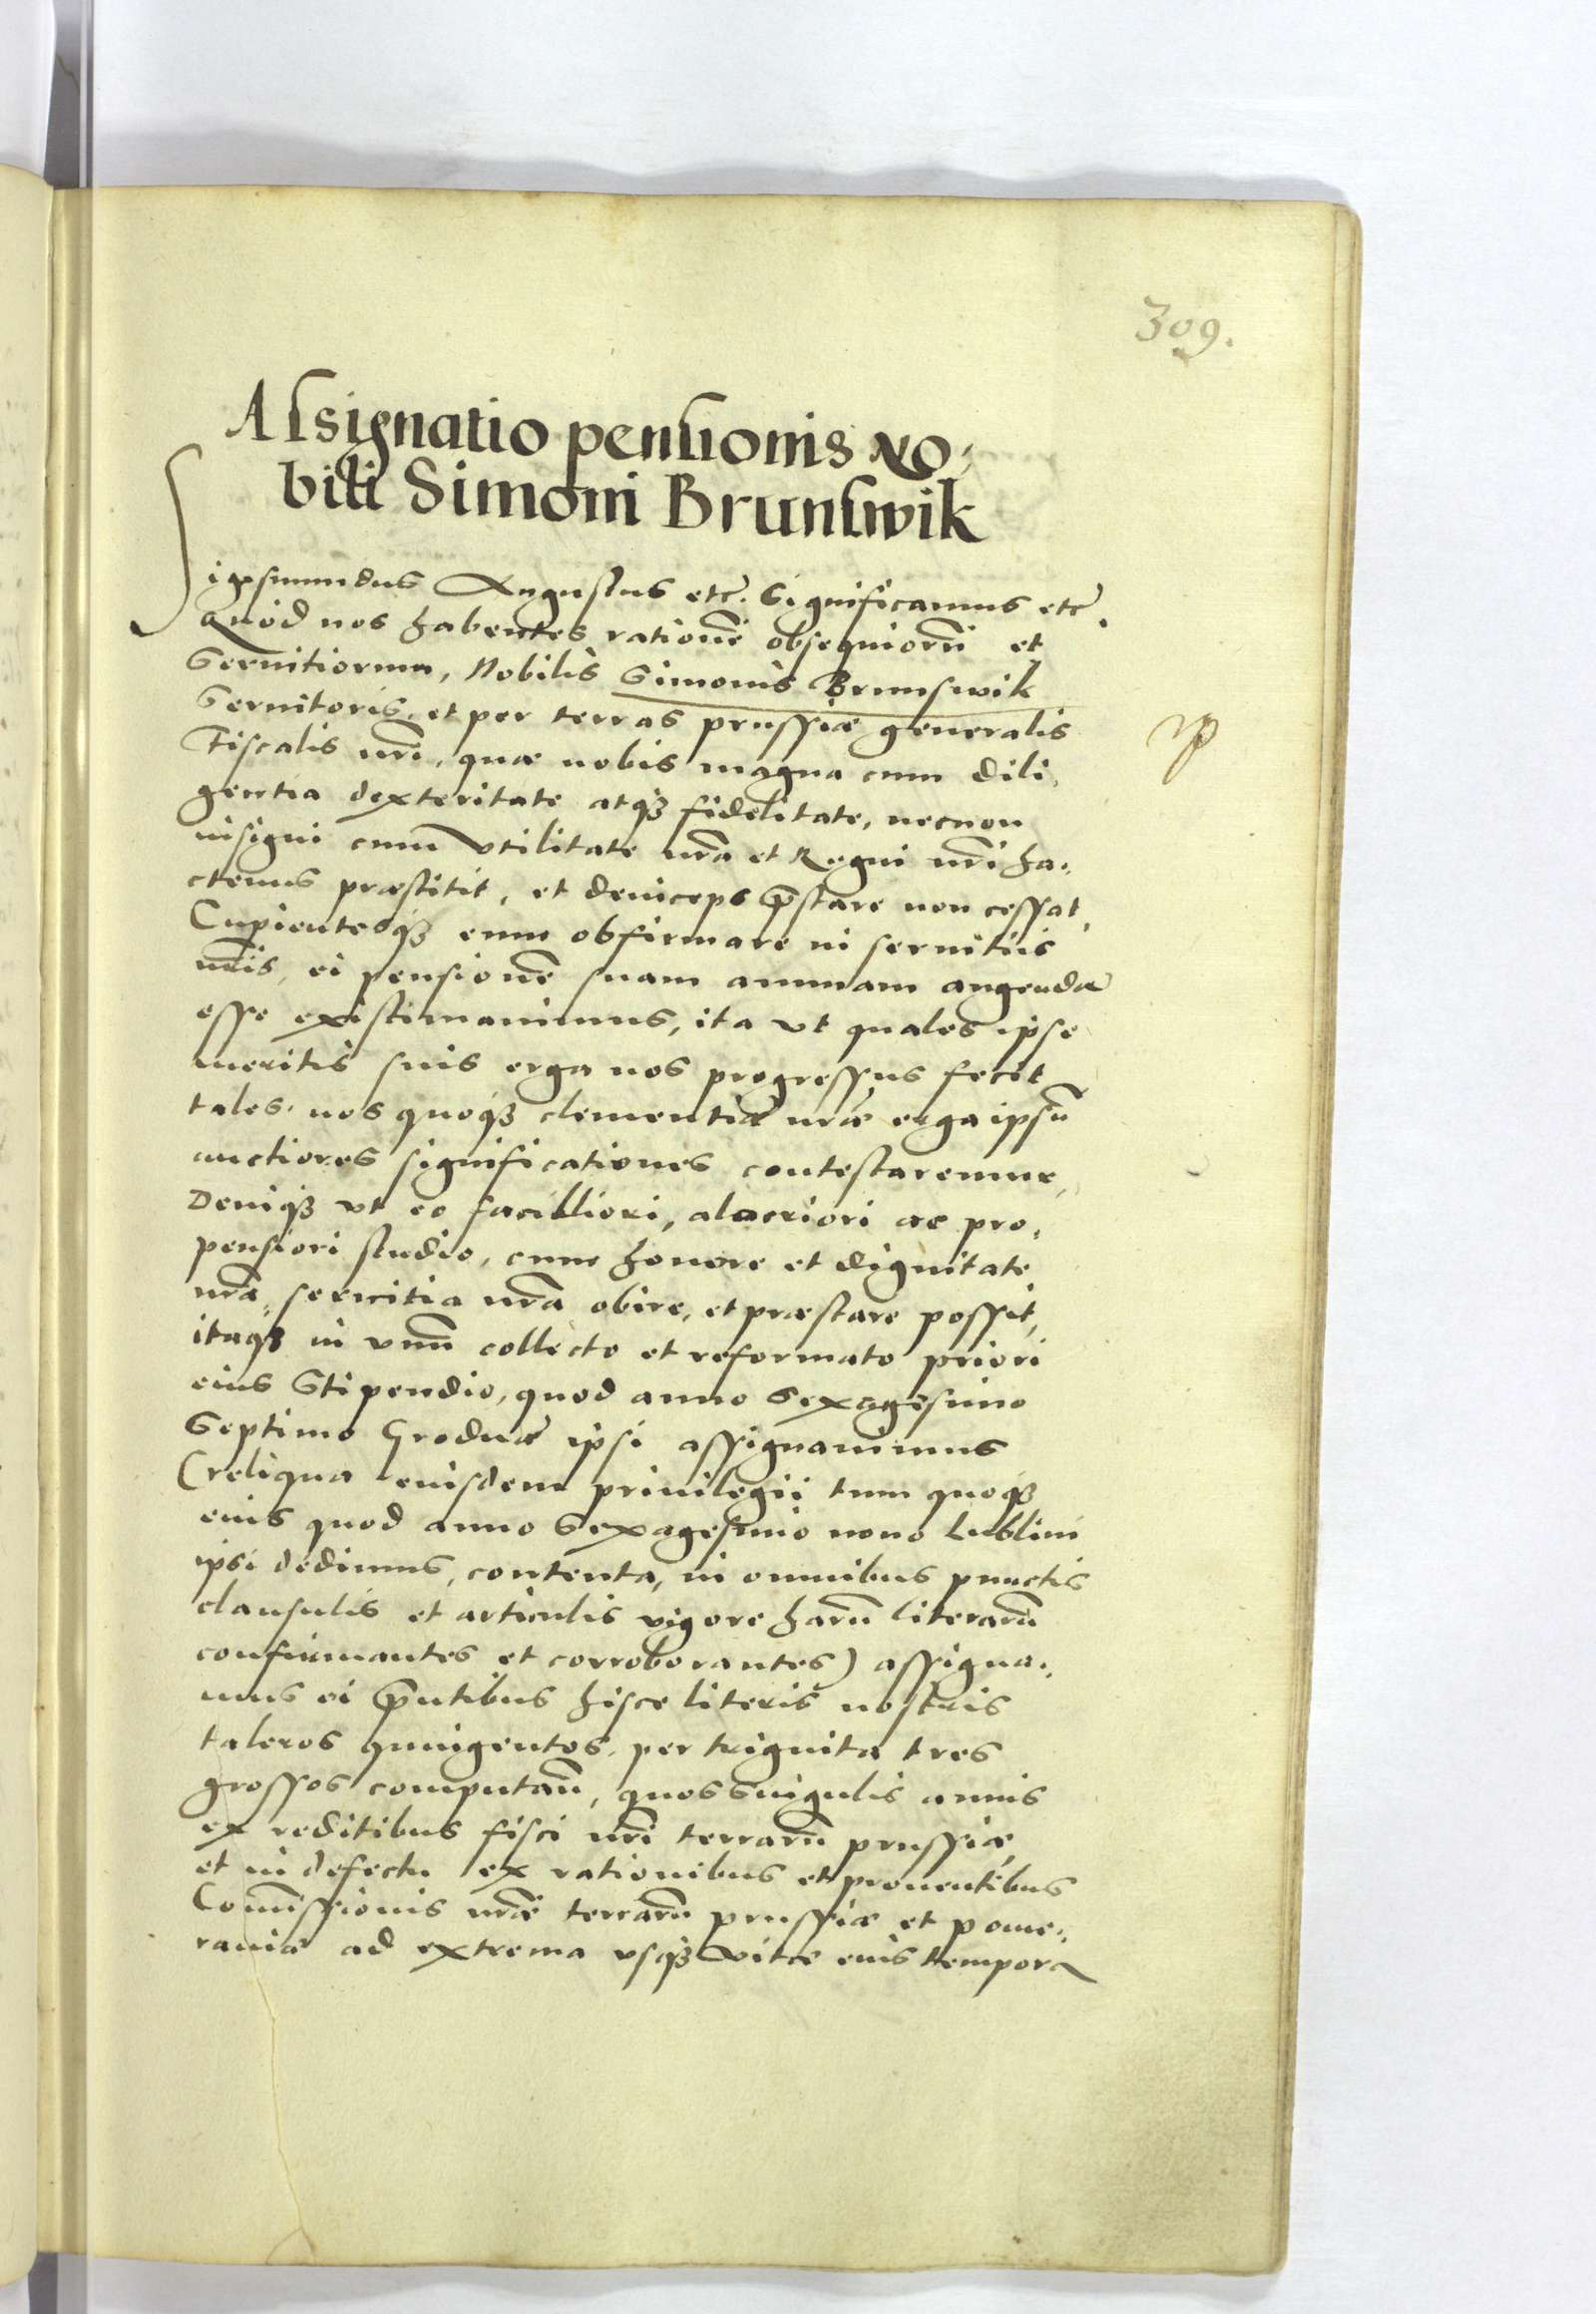 309.
Assignatio pensionis No,
bili Simoni Brunswik
Sigismundus Augustus etc. Significamus etc.
Quod nos habentes rationẽ obsequiorũ et
Seruitiorum, Nobilis Simonis Brunswik
Seruitoris, et per terras prussiæ generalis
Fiscalis nrĩ, quæ nobis magna cum dili,
gentia dexteritate atqȝ fidelitate, necnon
insigni cum vtilitate nrã et Regni nrĩ ha,
ctenus præstitit, et deinceps p̃stare non cessat,
Cupientesqȝ eum obfirmare in seruitiis
nrĩs, ei pensionẽ suam annuam augendã
esse existimauimus, ita vt quales ipse
meritis suis erga nos progressus fecit
tales, nos quoqȝ clementiæ nrãe erga ipsũ
auctiores significationes contestaremur,
Deniqȝ vt eo facilliori, alacriori ac pro,
pensiori studio, cum honore et dignitate
nrã, seruitia nrã obire, et præstare possit,
itaqȝ in vnũ collecto et reformato priori
eius Stipendio, quod anno Sexagesimo
Septimo Grodnæ ipsi assignauimus
(reliqua eiusdem priuilegii tum quoqȝ
eius quod anno Sexagesimo nono Lublini
ipsi dedimus, contenta, in omnibus punctis
clausulis et articulis vigore harũ literarũ
confirmantes et corroborantes) assigna,
mus ei p̃ntibus hisce literis nostris
taleros quingentos, per triginta tres
grossos computañ, quos singulis annis
ex reditibus fisci nrĩ terrarũ prussiæ,
et in defectu ex rationibus et prouentibus
Com̃issionis nrãe terrarũ prussiæ et pome,
raniæ ad extrema vsqȝ vitæ eius tempora